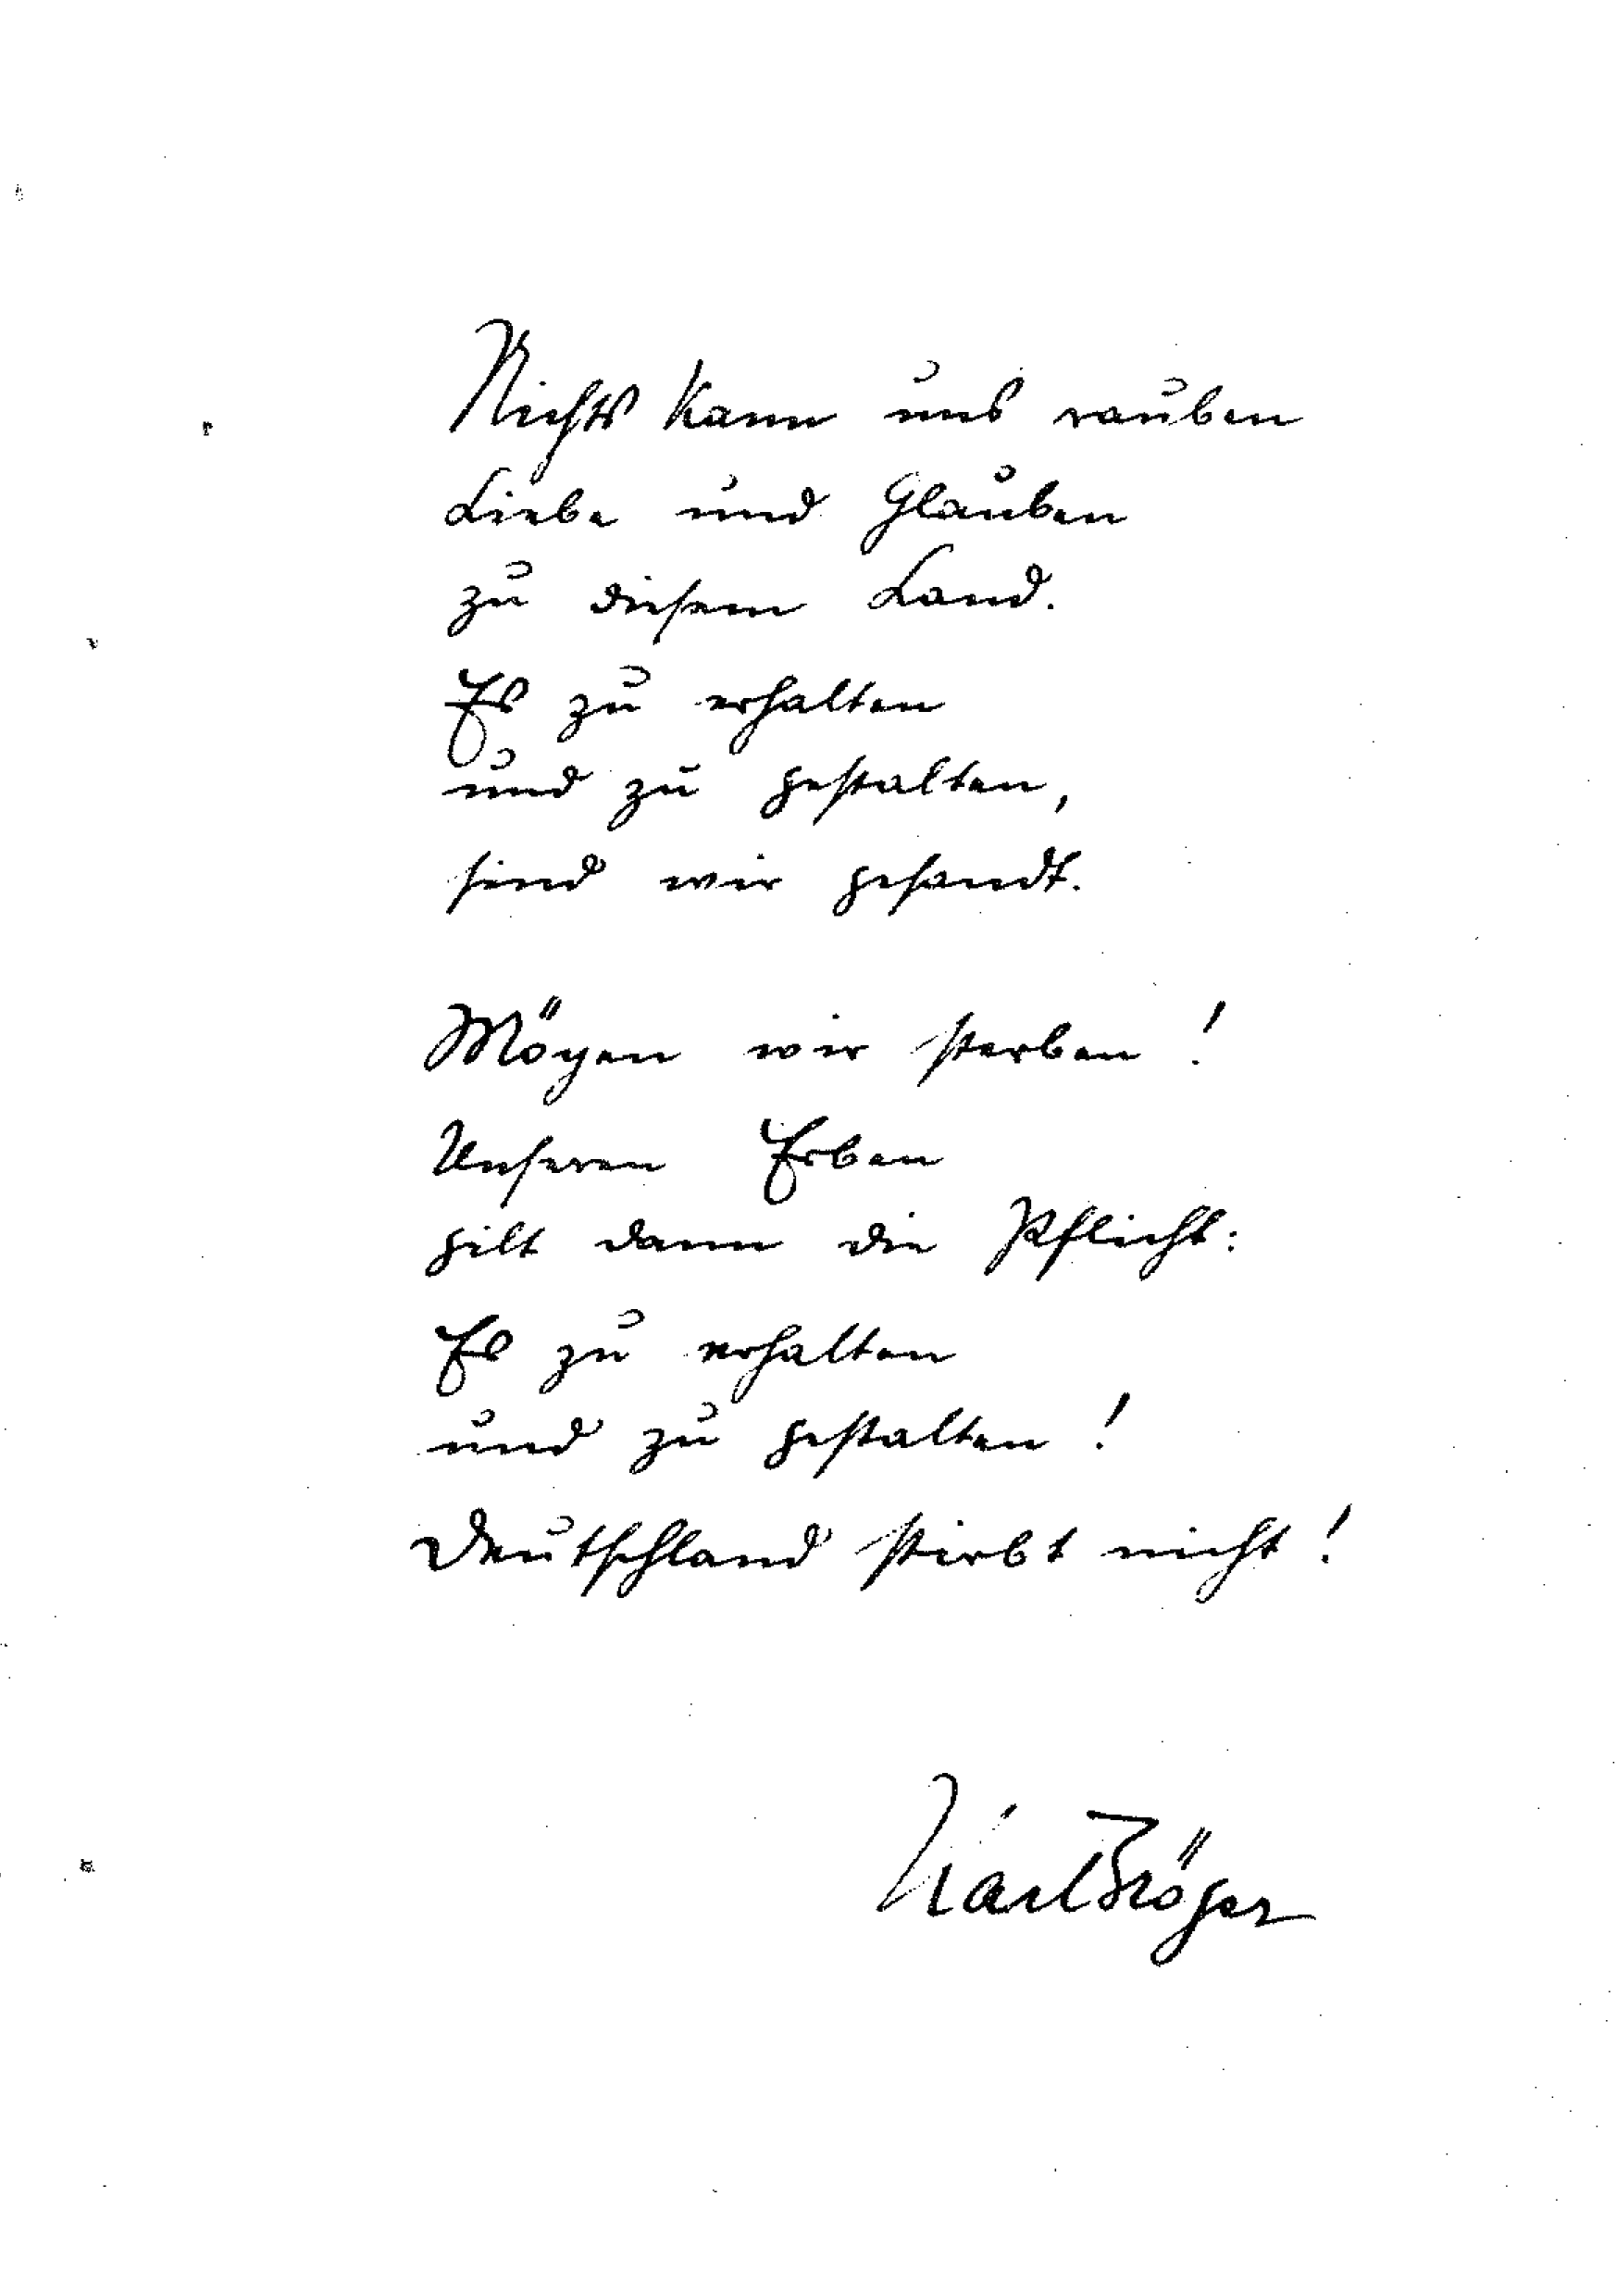 Nichts kann uns rauben
Liebe und Glauben
zu diesem Land.
Es zu erhalten
und zu gestalten,
sind wir gesandt.
Mögen wir sterben!
Unseren Erben
gilt dann die Pflicht:
Es zu erhalten
und zu gestalten!
Deutschland stirbt nicht!
Karl Bröger